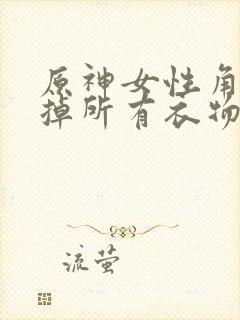 原神女性角
掉所有衣物
流萤